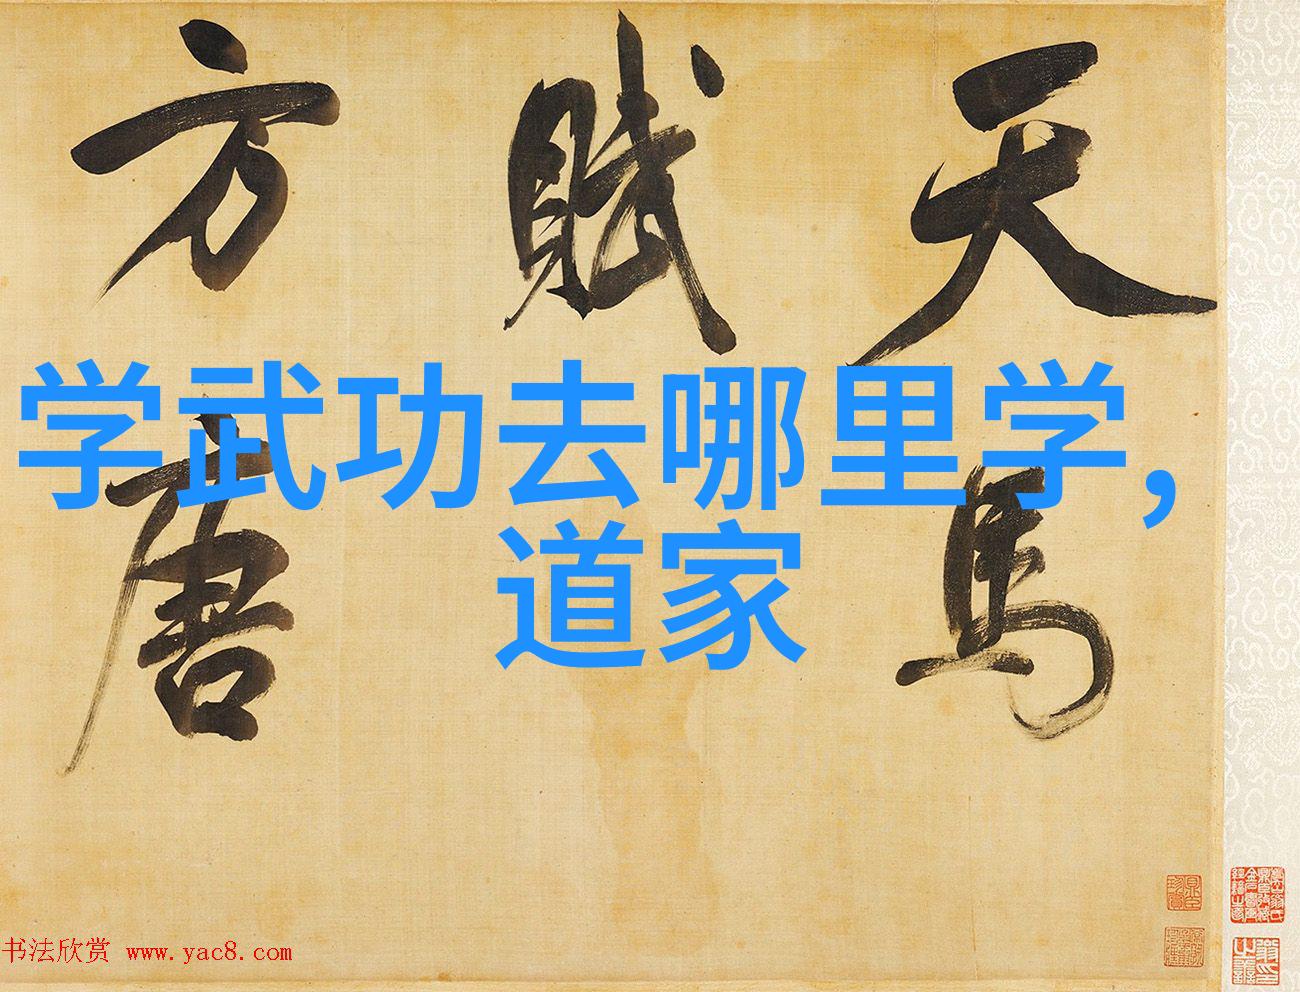 天馬
賦
方唐
学武功去哪里学，
道家
书法欣赏 www.yac8.com